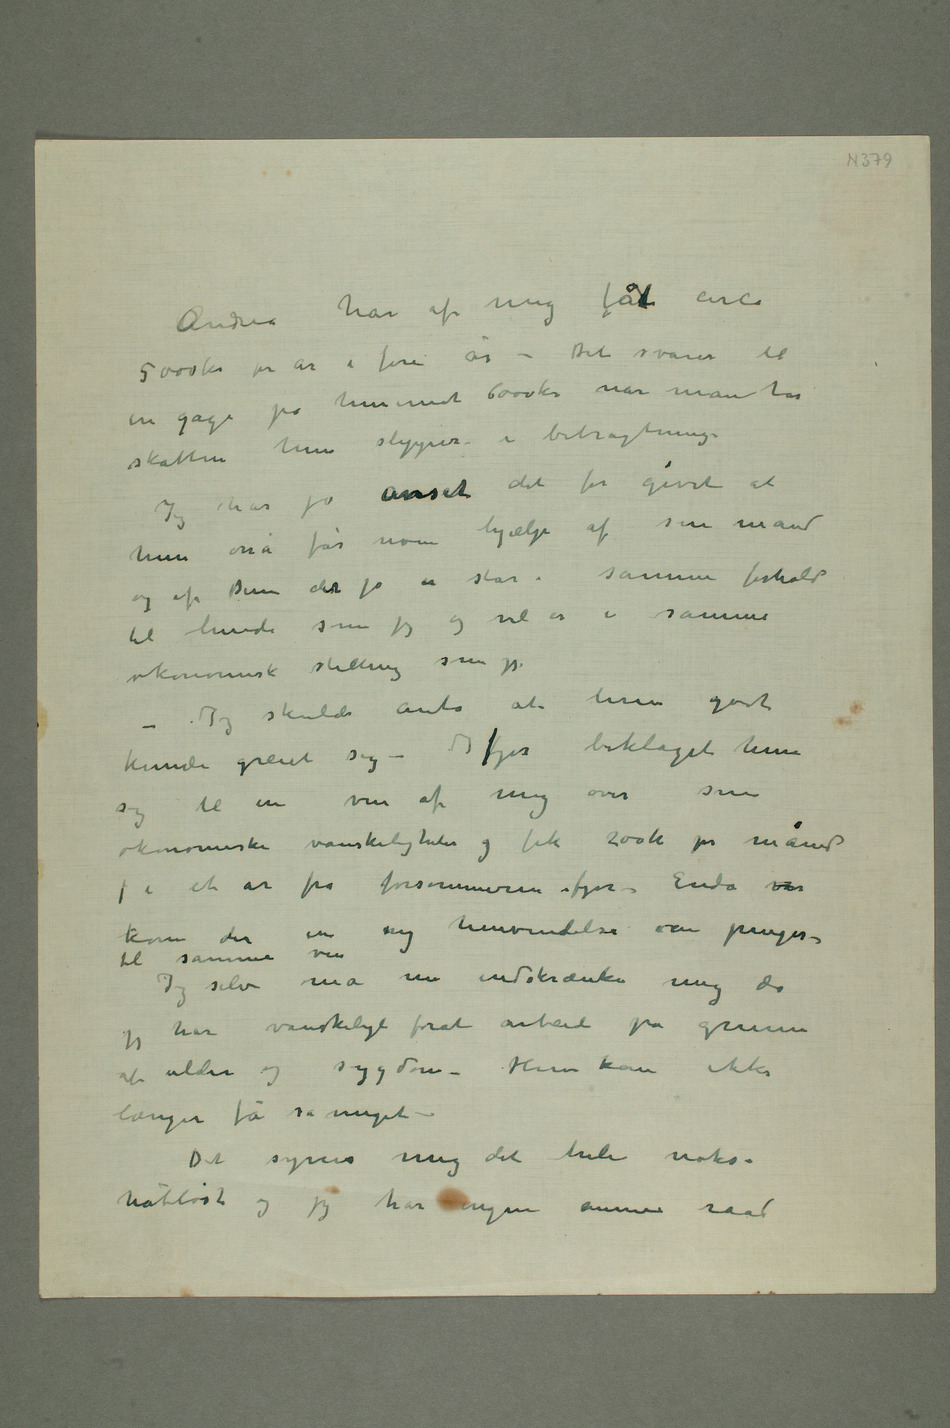 N 379
Andrea har af mig fåt circa
5000kr pr år i fire år – Det svarer til
en gage på henimot 6000kr når man tar
skatten hun slipper i betragtning
Jeg har jo anset det for givet at
hun også får noen hjælp af sin mand
og af Dem der jo står i samme forhold
til hende som jeg og vel er i samme
økonomisk stilling som jeg
– Jeg skulde anta at hun godt
kunde greiet sig – I fjor beklaget hun
sig til en ven af mig over sine
økonomiske vanskeligheter og fik 200k pr månd
i et år fra forsommeren ifjor – Enda var
kom der en ny henvendelse om penger –
til samme ven
Jeg selv må nu indskrænke mig da
jeg har vanskeligt forat arbeide på grunn
af alder og sygdom – Hun kan ikke
længer få så meget –
Det synes mig det hele nokså
håbløst og jeg har ingen annen raad